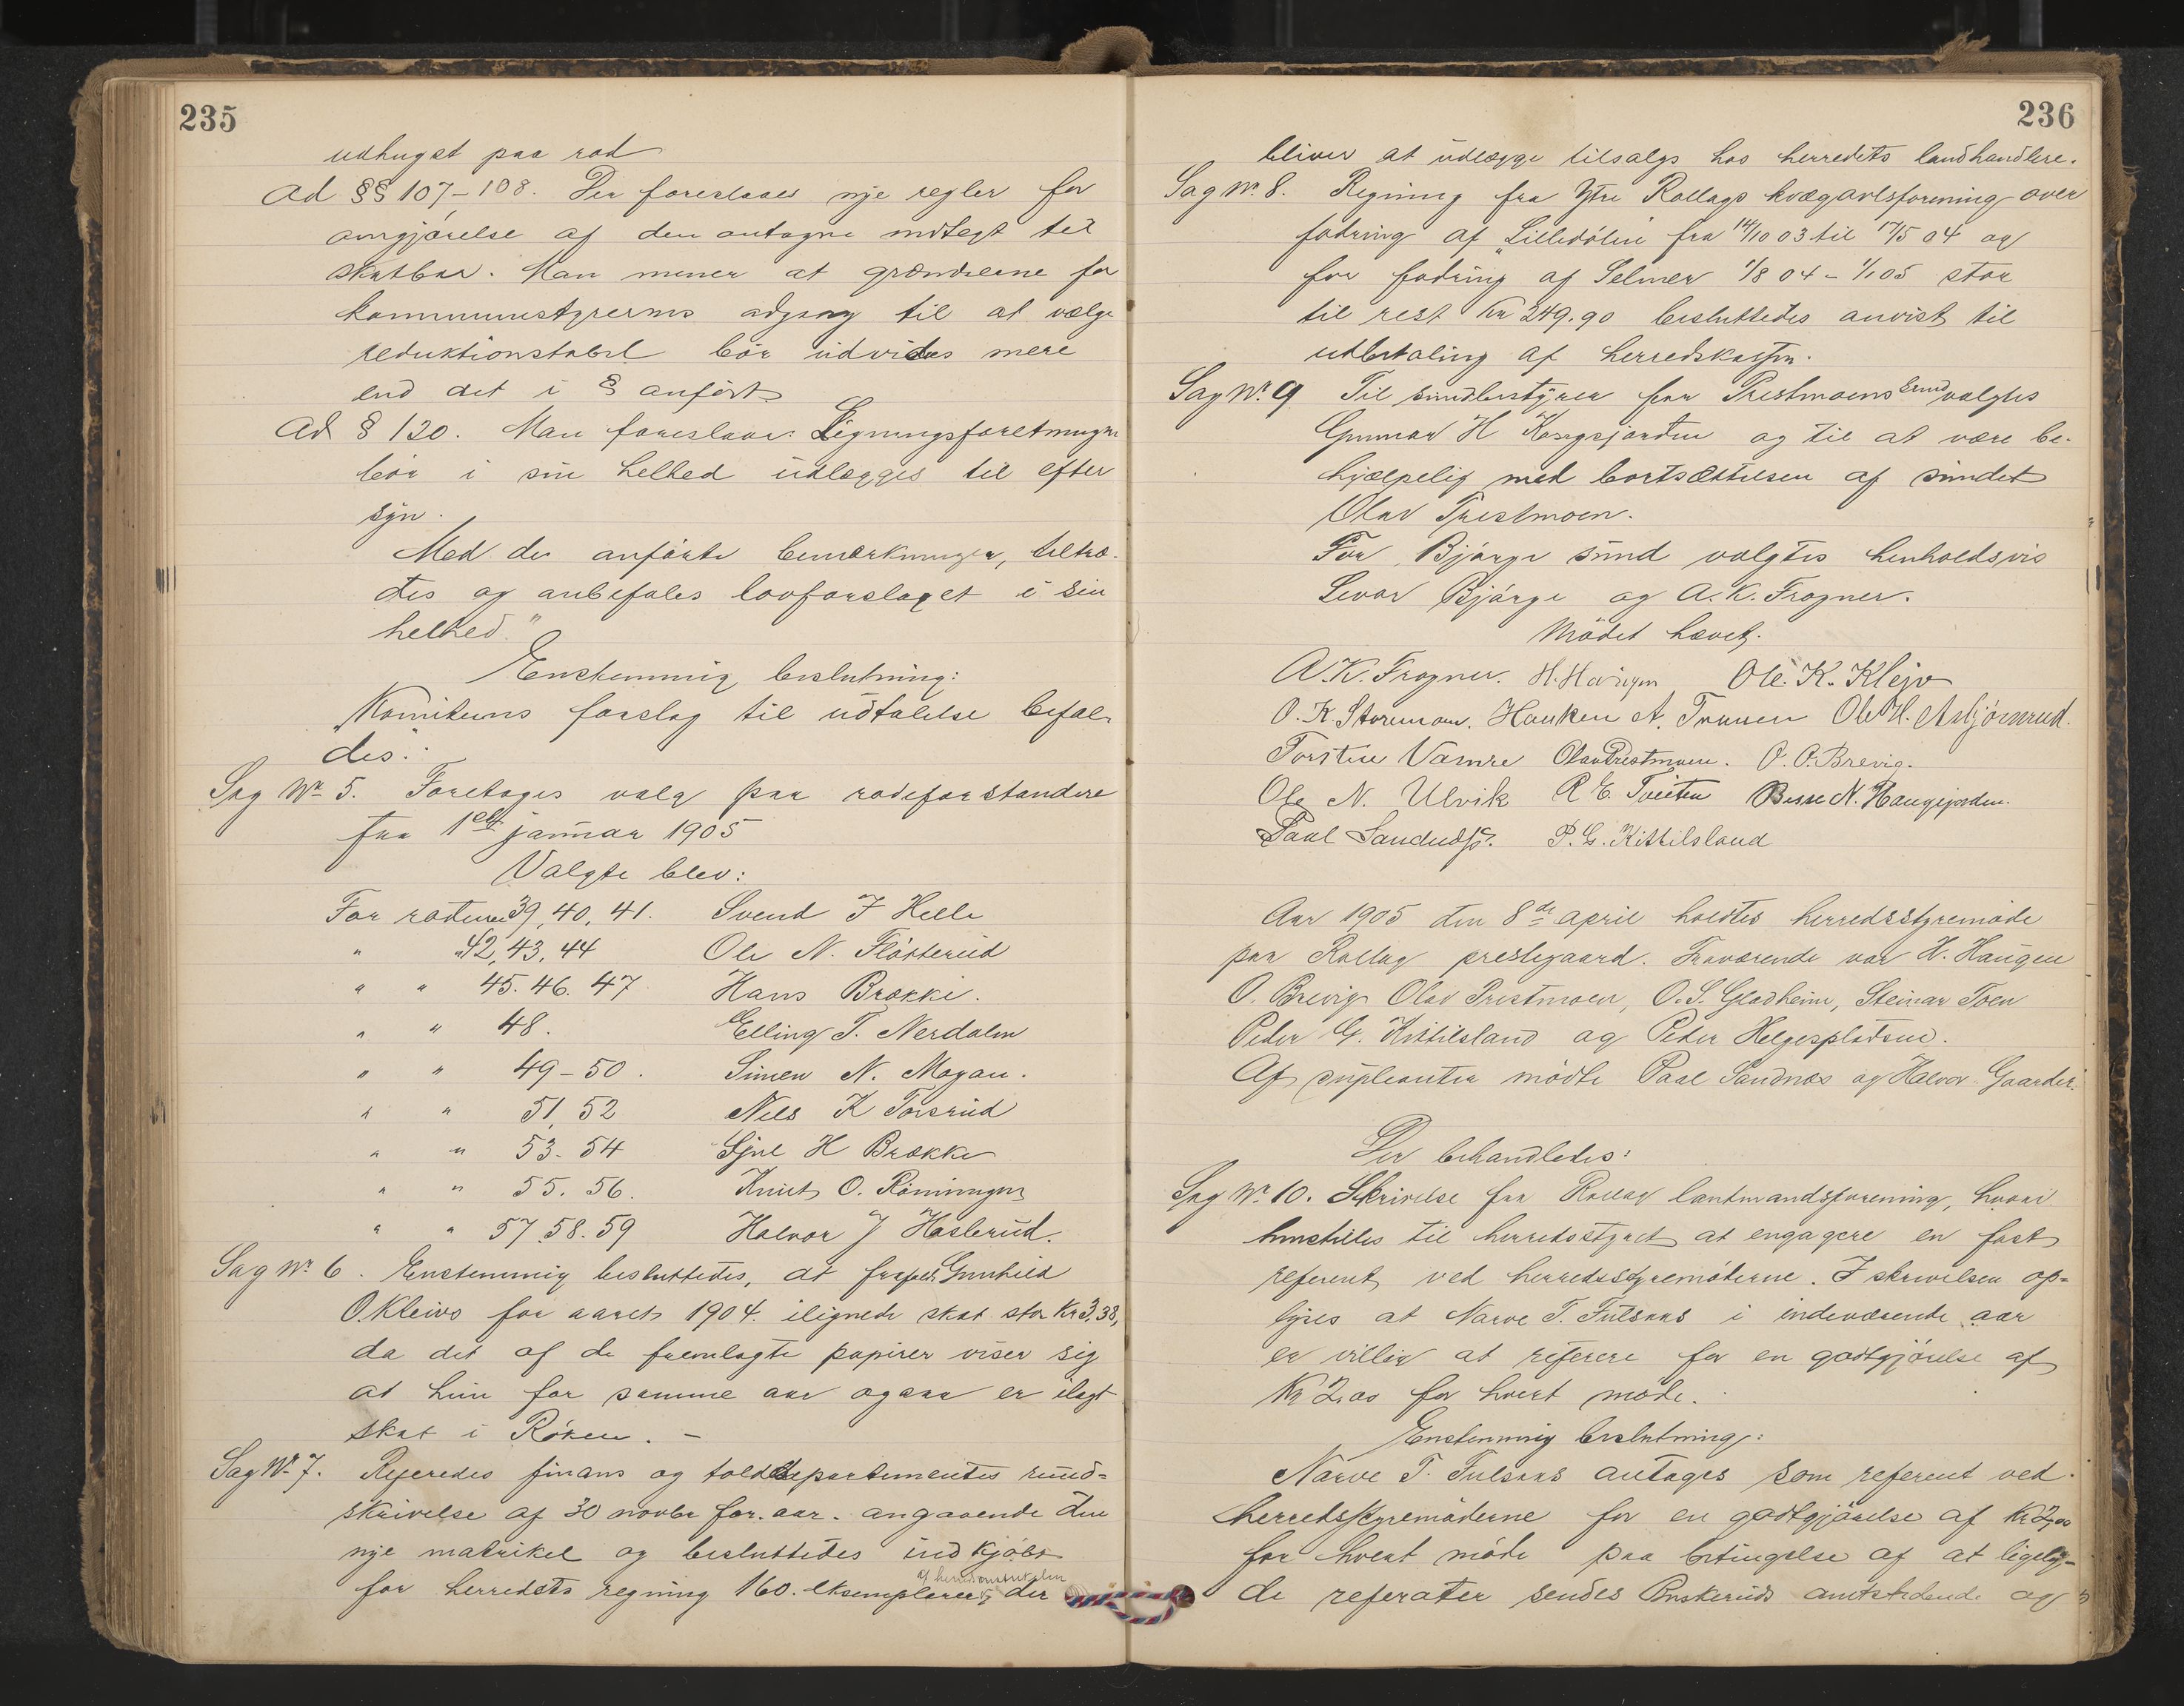 235
udhugst paa rod
Ad §§ 107-108. Der foreslaaes nye regler for
omgjørelse af den antagne indtægt til
skatbar. Man mener at grændserne for
kommunestyrernes adgang til at vælge
reduktionstabel bør udvides mere
end det i § anført
Ad § 120. Man foreslaar: Ligningsforetningen
bør i sin helhed udlægges til efter
syn.
Med de anførte bemærkninger, tiltræ-
des og anbefales lovforslaget i sin
helhed."
Enstemmig beslutning:
"Komiteens forslag til udtalelse befal-
des".
Sag Nr 5. Foretoges valg paa rodeforstandere
fra 1ste januar 1905
Valgte blev:
For roderne 39, 40, 41. Svend J Helle
" " 42, 43, 44 Ole N. Fløsterud
" " 45. 46. 47 Hans Brække.
" " 48. Elling T. Nerdalen
" " 49-50. Simen N. Mogan.
" " 51, 52 Nils K Torsrud
" " 53-54 Gjul H Brække
" " 55. 56. Knut O. Rømmingen
" " 57 58. 59 Halvor J Haslerud.
Sag Nr 6. Enstemmig besluttedes, at frafalde Gunhild
O. Kleivs for aaret 1904 ilignede skat stor Kr 3,38,
da det af de fremlagte papirer viser sig
at hun for samme aar ogsaa er ilagt
skat i Røken. -
Sag Nr 7. Refereredes finans og tolddepartementes rund-
skrivelse af 30 novbr for. aar. angaaende den
nye matrikel og besluttedes indkjøbt
for herredets regning 160. eksemplarer af herredsmatrikelen, der
236
bliver at udlægge tilsalgs hos herredets landhandlere.
Sag Nr. 8. Regning fra Ytre Rollags kvægavlsforening over
fodring af "Lilledølen" fra 14/10 03 til 17/5 04 og
for fodring af Selmer 1/8 04 - 1/1 05 stor
til rest Kr 249.90 besluttedes anvist til
udbetaling af herredskassen.
Sag Nr. 9 Til sundbestyrer for Prestmoens sund valgtes
Gunnar H Kongsjorden og til at være be-
hjælpelig med bortsættelsen af sundet
Olav Prestmoen.
For Bjørge sund valgtes henholdsvis
Levor Bjørge og A. K. Frogner.
Mødet hævet.
A. K. Frogner. H. Haugen Ole. K. Klejv
O. K. Stormoen. Hauken A. Traaen Ole H. Asbjørnrud.
Torstein Vamre Olav Prestmoen. O. O. Brevig.
Ole N. Ulvik R E. Tveiten Besse N. Haugejorden.
Paul Sandnæs. P. G. Kittilsland
Aar 1905 den 8de april holdtes herredsstyremøde
paa Rollag prestegaard. Fraværende var H. Haugen
O. Brevig Olav Prestmoen, O. S. Gladheim, Steinar Toen
Peder G. Kittilsland og Peder Helgespladsen.
Af supleanter mødte Paal Sandnæs og Halvor Gaarder.
Der behandledes:
Sag Nr. 10. Skrivelse fra Rollag lantmandsforening, hvori
henstilles til herredsstyret at engagere en fast
referent ved herredsstyremøderne. I skrivelsen op=
lyses at Narve T. Fulsaas i indeværende aar
er villig at referere for en godtgjørelse af
Kr 2,00 for hvert møde.
Enstemmig beslutning:
Narve T. Fulsaas antages som referent ved
herredsstyremøderne for en godtgjørelse af Kr 2,00
for hvert møde paa betingelse af at ligely-
de referater sendes Buskeruds amtstidende og